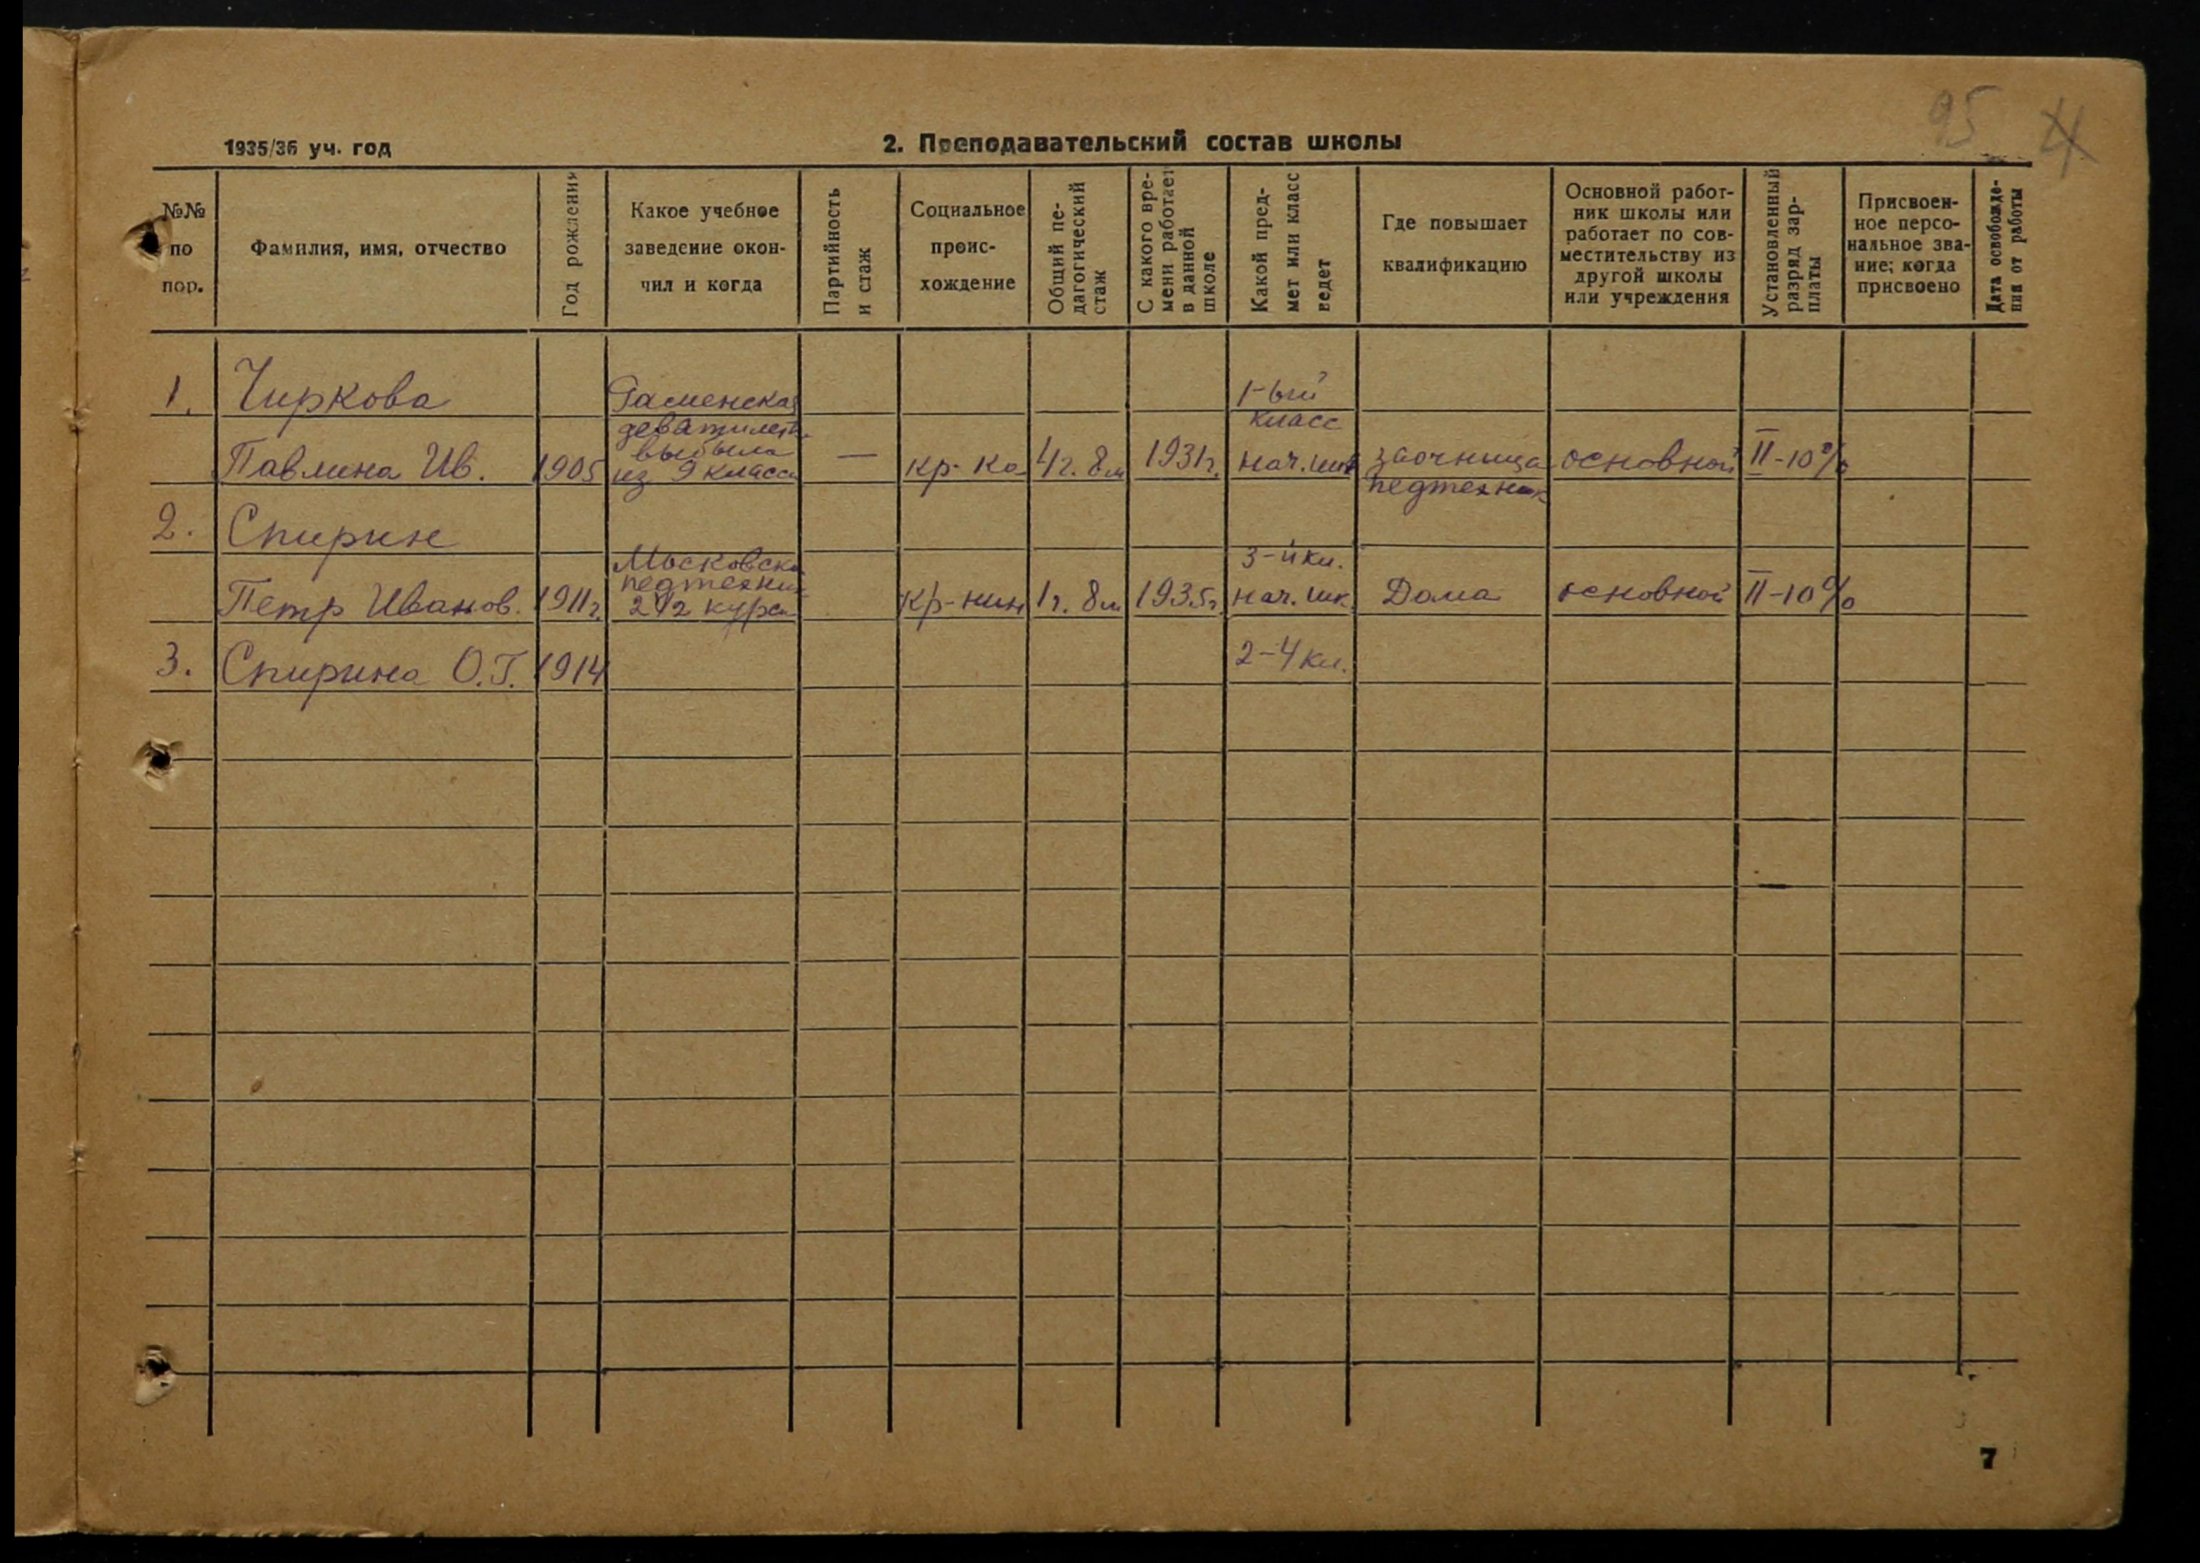 95
1935/36 уч. год
2. Преподавательский состав школы
№№ по пор.
Фамилия, имя, отчество
Год рождения
Какое учебное заведение окон-
чил и когда
Партийность и стаж
Социальное проис-
хождение
Общий пе-
дагогический стаж
С какого вре-
мени работает в данной школе
Какой пред-
мет или класс ведет
Где повышает квалификацию
Основной работ-
ник школы или
работает по сов-
местительству из
другой школы
или учреждения
Установленный разряд зар-
платы
Присвоен-
ное персо-
нальное зва-
ние; когда
присвоено
Дата освобожде-
ния от работы
1. Чиркова
Павлина Ив. 1905
девятилетк.
выбыла
из 9 класса
— кр-ка 4 г. 8 м 1931 г.
1-ый
класс
нач. шк
заочница
педтехник
основной II-10%
2. Спирин
Петр Иванов. 1911 г.
Московск
педтехник
2 1/2 курса
кр-нин 1 г. 8 м 1935 г.
3-й кл.
нач. шк.
Дома основной II-10%
3. Спирина О.Г. 1914 2-4 кл.
7